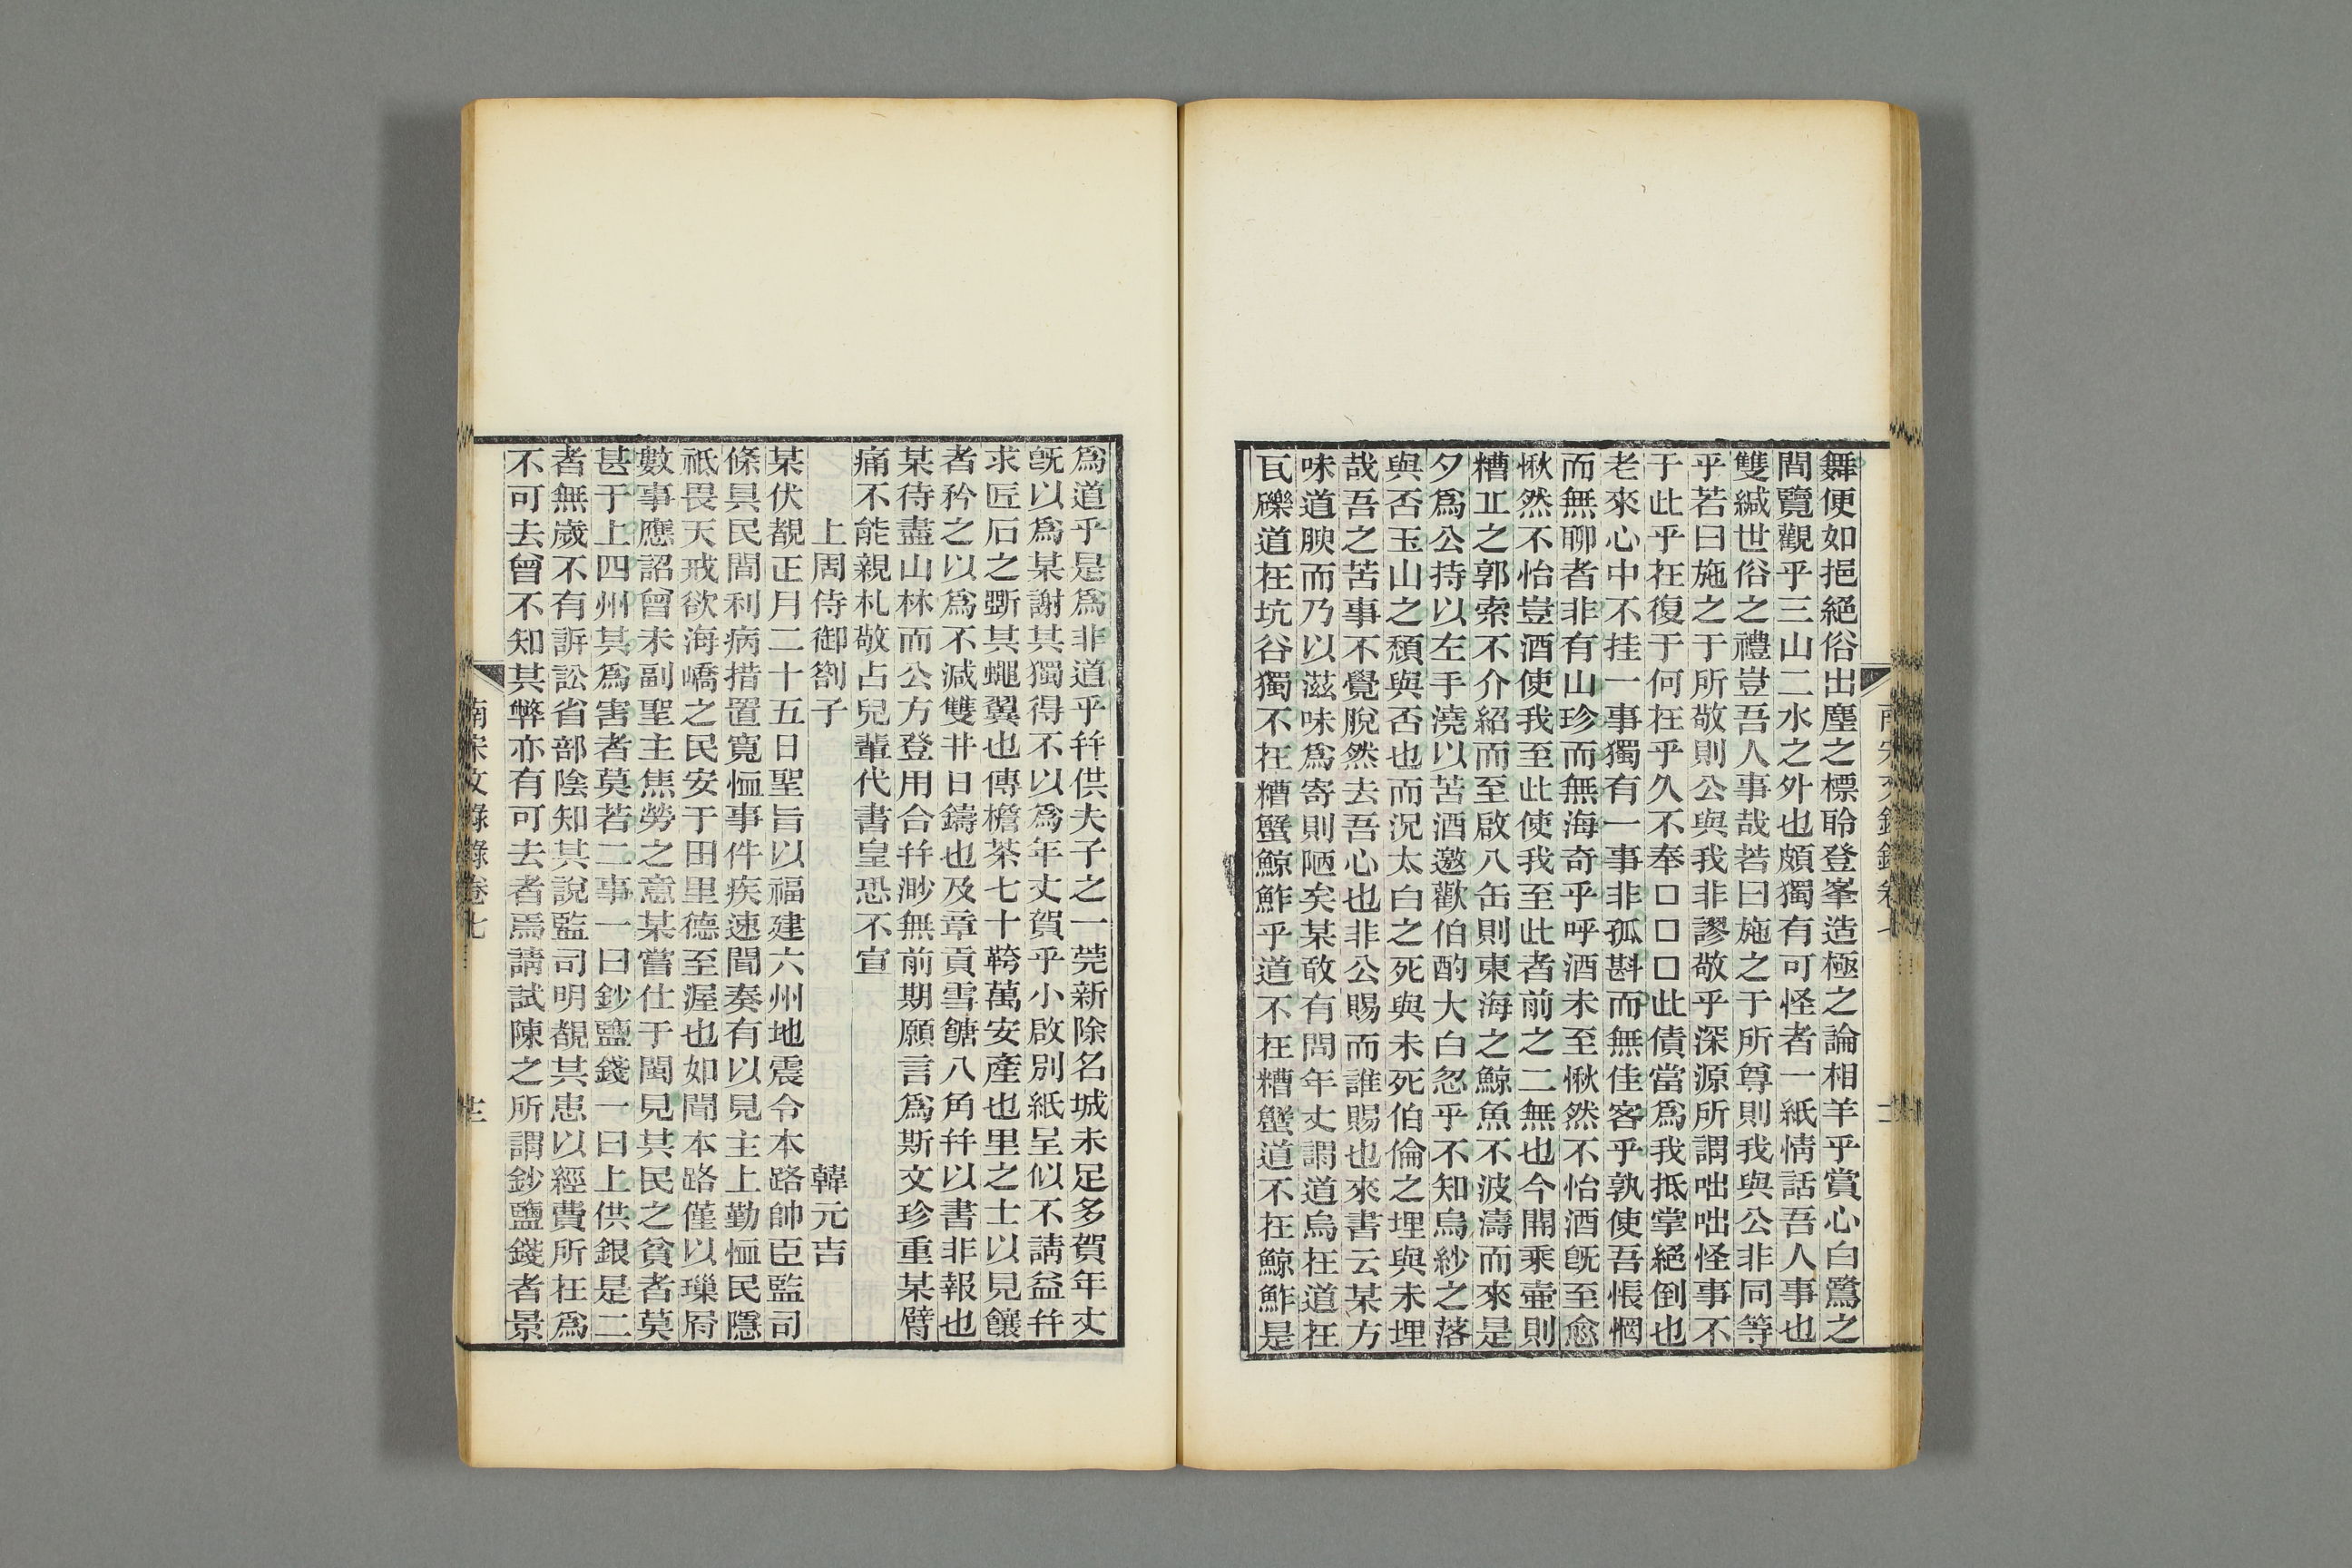 舞便如挹絕俗出塵之標聆登峯造極之論相羊乎賞心白鷺之
間覽觀乎三山二水之外也頗獨有可怪者一紙情話吾人事也
雙緘世俗之禮豈吾人事哉若曰施之于所尊則我與公非同等
乎若曰施之于所敬則公與我非謬敬乎深源所謂咄咄怪事不
于此乎在復于何在乎久不奉□□□此債當爲我抵掌絕倒也
老來心中不挂一事獨有一事非孤斟而無佳客乎孰使吾悵惘
而無聊者非有山珍而無海奇乎呼酒未至愀然不怡酒旣至愈
愀然不怡豈酒使我至此使我至此者前之二無也今開乘壺則
糟丘之郭索不介紹而至啟八缶則東海之鯨魚不波濤而來是
夕爲公持以左手澆以苦酒邀歡伯酌大白忽乎不知烏紗之落
與否玉山之頹與否也而況太白之死與未死伯倫之埋與未埋
哉吾之苦事不覺脫然去吾心也非公賜而誰賜也來書云某方
味道腴而乃以滋味爲寄則陋矣某敢有問年丈謂道烏在道在
瓦礫道在坑谷獨不在糟蟹鯨鮓乎道不在糟蟹道不在鯨鮓是
南宋文錄錄卷七
爲道乎是爲非道乎幷供夫子之一莞新除名城未足多賀年丈
旣以爲某謝其獨得不以爲年丈賀乎小啟別紙呈似不請益幷
求匠石之斲其蠅翼也傳檐茶七十鞈萬安產也里之士以見饟
者矜之以爲不減雙井日鑄也及章貢雪餹八角幷以書非報也
某待盡山林而公方登用合幷渺無前期願言爲斯文珍重某臂
痛不能親札敬占兒輩代書皇恐不宣
上周侍御劄子　韓元吉
某伏覩正月二十五日聖旨以福建六州地震令本路帥臣監司
條具民間利病措置寬恤事件疾速聞奏有以見主上勤恤民隱
祇畏天戒欲海嶠之民安于田里德至渥也如聞本路僅以瑣屑
數事應詔曾未副聖主焦勞之意某嘗仕于閩見其民之貧者莫
甚于上四州其爲害者莫若二事一曰鈔鹽錢一曰上供銀是二
者無歲不有訴訟省部陰知其說監司明覩其患以經費所在爲
不可去曾不知其弊亦有可去者焉請試陳之所謂鈔鹽錢者景
南宋文錄錄卷七